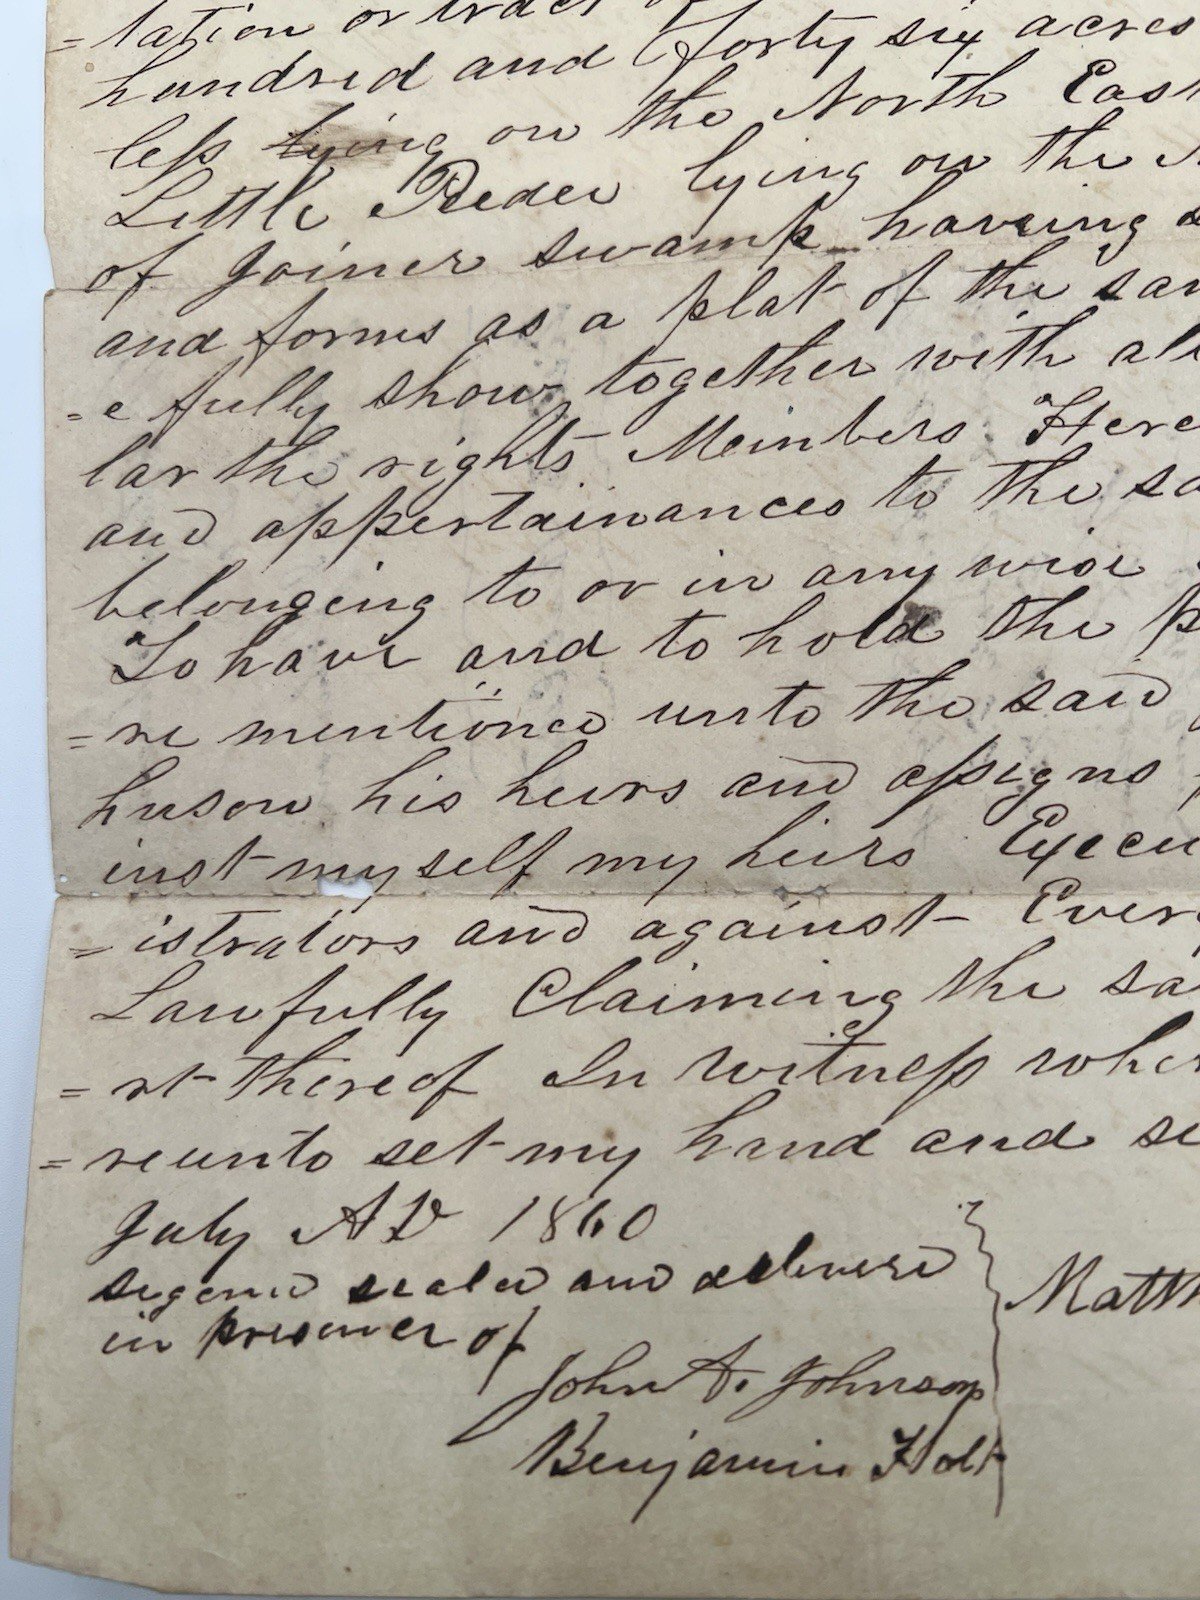 =tation or tract
hundred and forty six acres
less lying on the North East
Little Peedee lying on the
of Joiner swamp having
and forms as a plat of the
=e fully show together with
lar the rights Meinbers Here
and appertainances to the
belonging to or in any wise
To have and to hold the
=re mentioned unto the said
hnson his heirs and assigns
inst myself my heirs Execu
=istrators and against Every
Lawfully Claiming the
=rt thereof In witness wher
=reunto set my hand and se
July AD 1860
signed sealed and delivered
in presence of
Matth
John A. Johnson
Benjamin Holt